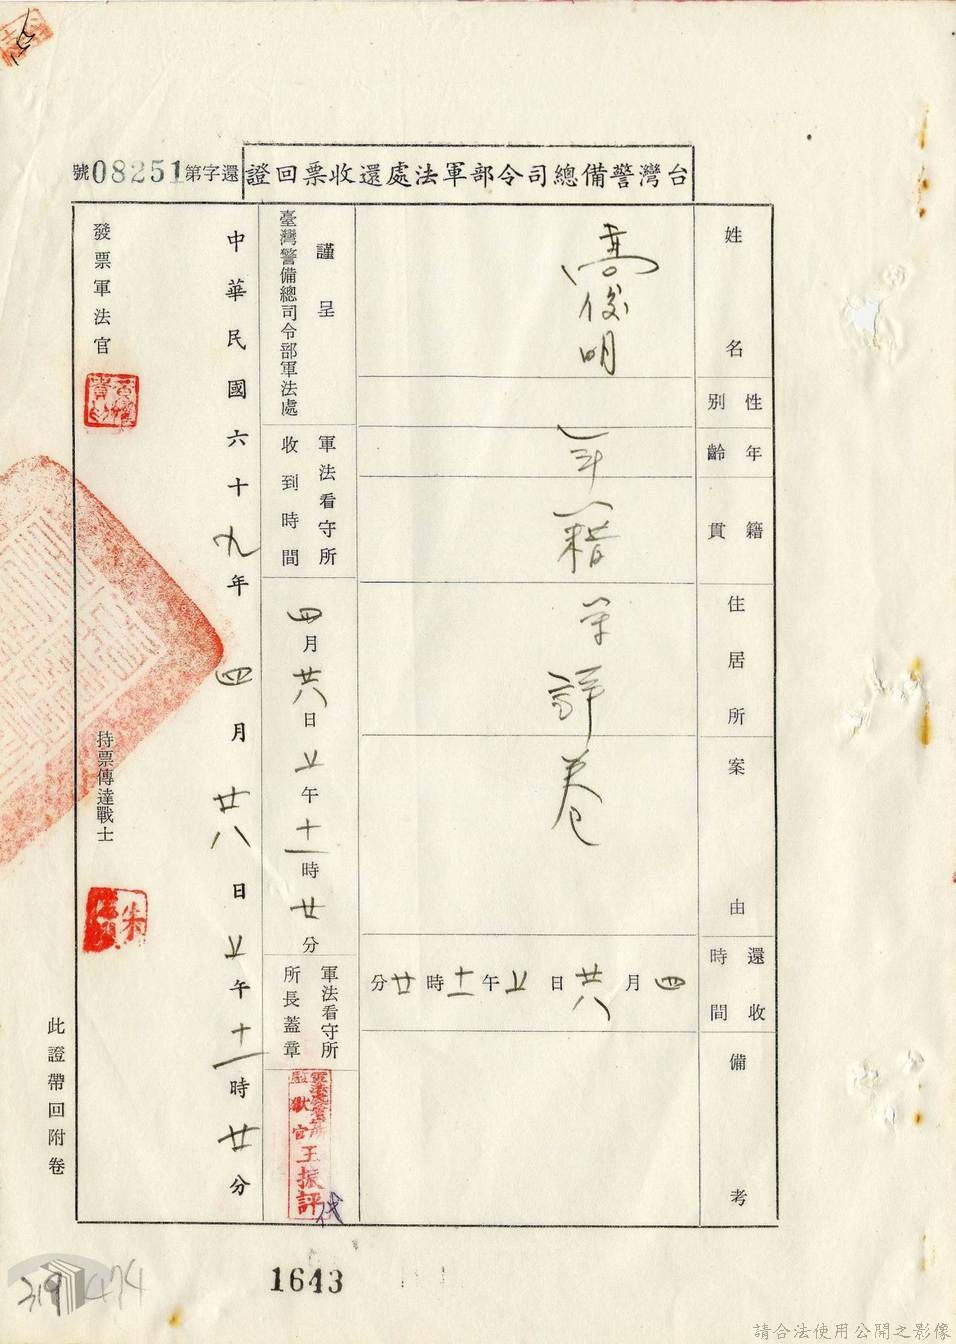 台灣警備總司令部軍法處還收票回證
還字第08251號
姓名
高俊明
性別
年齡
年
籍貫
籍
住居所
案由
詳卷
還收時間
四月廿八日上午十一時廿分
備考
謹呈
臺灣警備總司令部軍法處
軍法看守所
收到時間
四月廿八日上午十一時廿分
軍法看守所
所長蓋章
獄官王振評
代
中華民國六十九年四月廿八日上午十一時廿分
發票軍法官
持票傳達戰士
朱
此證帶回附卷
319
474
1643
請合法使用公開之影像